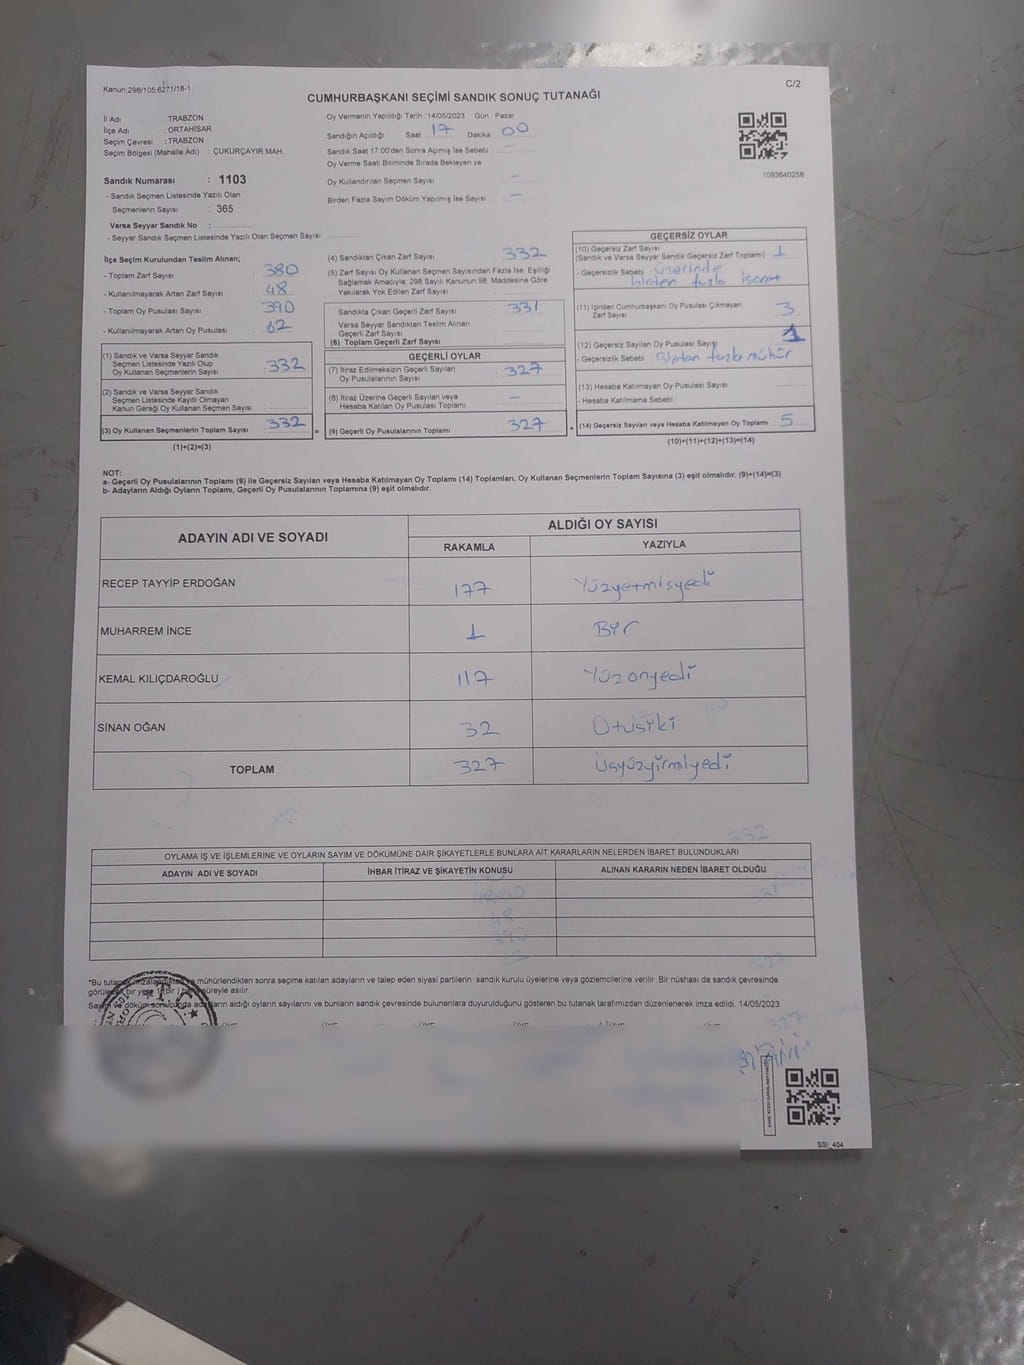 Kanun;298/105,6271/18-1
C/2
CUMHURBAŞKANI SEÇİMİ SANDIK SONUÇ TUTANAĞI
İl Adı TRABZON
İlçe Adı : ORTAHİSAR
Seçim Çevresi : TRABZON
Seçim Bölgesi (Mahalle Adı) : ÇUKURÇAYIR MAH.
Oy Vermenin Yapıldığı Tarih : 14/05/2023 Gün : Pazar
Sandığın Açıldığı Saat 17 Dakika 00
Sandık Saat 17:00'den Sonra Açılmış İse Sebebi -
Oy Verme Saati Bitiminde Sırada Bekleyen ve
Oy Kullandırılan Seçmen Sayısı -
Birden Fazla Sayım Döküm Yapılmış İse Sayısı -
1093640258
Sandık Numarası : 1103
- Sandık Seçmen Listesinde Yazılı Olan
Seçmenlerin Sayısı : 365
Varsa Seyyar Sandık No :
- Seyyar Sandık Seçmen Listesinde Yazılı Olan Seçmen Sayısı
İlçe Seçim Kurulundan Teslim Alınan;
- Toplam Zarf Sayısı : 380
- Kullanılmayarak Artan Zarf Sayısı : 48
- Toplam Oy Pusulası Sayısı : 390
- Kullanılmayarak Artan Oy Pusulası : 62
(1) Sandık ve Varsa Seyyar Sandık
Seçmen Listesinde Yazılı Olup
Oy Kullanan Seçmenlerin Sayısı : 332
(2) Sandık ve Varsa Seyyar Sandık
Seçmen Listesinde Kayıtlı Olmayan
Kanun Gereği Oy Kullanan Seçmen Sayısı
(3) Oy Kullanan Seçmenlerin Toplam Sayısı : 332
(1)+(2)=(3)
(4) Sandıktan Çıkan Zarf Sayısı : 332
(5) Zarf Sayısı Oy Kullanan Seçmen Sayısından Fazla İse, Eşitliği
Sağlamak Amacıyla; 298 Sayılı Kanunun 98. Maddesine Göre
Yakılarak Yok Edilen Zarf Sayısı
Sandıkta Çıkan Geçerli Zarf Sayısı : 331
Varsa Seyyar Sandıktan Teslim Alınan
Geçerli Zarf Sayısı
(6) Toplam Geçerli Zarf Sayısı
GEÇERLİ OYLAR
(7) İtiraz Edilmeksizin Geçerli Sayılan
Oy Pusulalarının Sayısı : 327
(8) İtiraz Üzerine Geçerli Sayılan veya
Hesaba Katılan Oy Pusulası Toplamı : -
(9) Geçerli Oy Pusulalarının Toplamı : 327
GEÇERSİZ OYLAR
(10) Geçersiz Zarf Sayısı
(Sandık ve Varsa Seyyar Sandık Geçersiz Zarf Toplamı) : 1
- Geçersizlik Sebebi : üzerinde
birden fazla işaret
(11) İçinden Cumhurbaşkanı Oy Pusulası Çıkmayan
Zarf Sayısı : 3
(12) Geçersiz Sayılan Oy Pusulası Sayısı : 1
- Geçersizlik Sebebi : Birden fazla mühür
(13) Hesaba Katılmayan Oy Pusulası Sayısı :
- Hesaba Katılmama Sebebi :
(14) Geçersiz Sayılan veya Hesaba Katılmayan Oy Toplamı : 5
(10)+(11)+(12)+(13)=(14)
NOT:
a- Geçerli Oy Pusulalarının Toplamı (9) ile Geçersiz Sayılan veya Hesaba Katılmayan Oy Toplamı (14) Toplamları, Oy Kullanan Seçmenlerin Toplam Sayısına (3) eşit olmalıdır. (9)+(14)=(3)
b- Adayların Aldığı Oyların Toplamı, Geçerli Oy Pusulalarının Toplamına (9) eşit olmalıdır.
ADAYIN ADI VE SOYADI
ALDIĞI OY SAYISI
RAKAMLA YAZIYLA
RECEP TAYYİP ERDOĞAN 177 Yüzyetmişyedi
MUHARREM İNCE 1 Bir
KEMAL KILIÇDAROĞLU 117 Yüzonyedi
SİNAN OĞAN 32 Otuziki
TOPLAM 327 Üçyüzyirmiyedi
OYLAMA İŞ VE İŞLEMLERİNE VE OYLARIN SAYIM VE DÖKÜMÜNE DAİR ŞİKAYETLERLE BUNLARA AİT KARARLARIN NELERDEN İBARET BULUNDUKLARI
ADAYIN ADI VE SOYADI İHBAR İTİRAZ VE ŞİKAYETİN KONUSU ALINAN KARARIN NEDEN İBARET OLDUĞU
*Bu mühürlendikten sonra seçime katılan adayların ve talep eden siyasi partilerin sandık kurulu üyelerine veya gözlemcilerine verilir. Bir nüshası da sandık çevresinde
bir yere süreyle asılır.
aldığı oyların sayılarını ve bunların sandık çevresinde bulunanlara duyurulduğunu gösteren bu tutanak tarafımızdan düzenlenerek imza edildi. 14/05/2023
T.C.
SSI_404